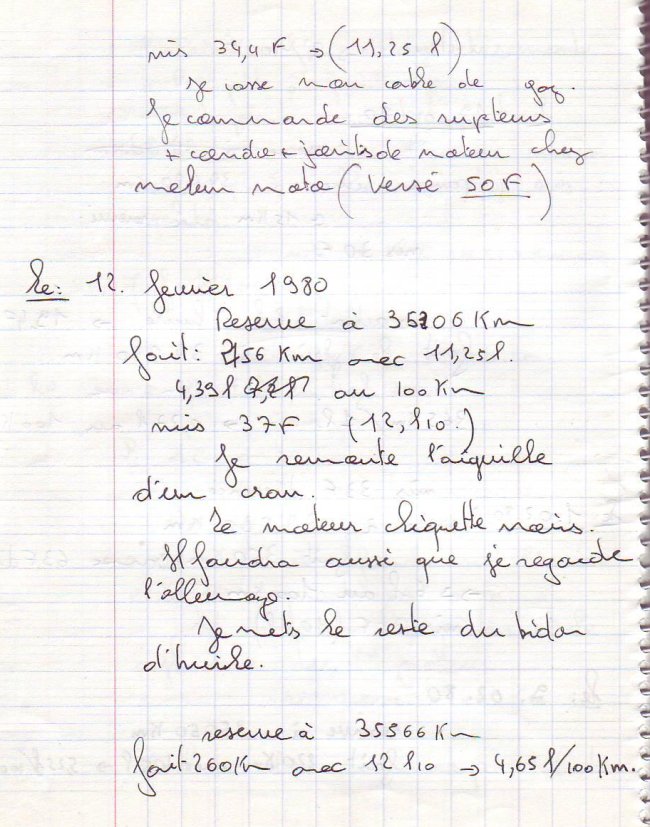 mis 34,4 F → (11,25 l)
Je casse mon cable de gaz.
Je commande des rupteurs
+ condo + joints de moteur chez
melun moto (Versé 50 F)
Le: 12. fevrier 1980
Reserve à 35306 Km
fait: 256 Km avec 11,25 l.
4,39 l au 100 Km
mis 37 F (12, l10.)
Je remonte l'aiguille
d'un cran.
Le moteur cliquette moins.
Il faudra aussi que je regarde
l'allumage.
Je mets le reste du bidon
d'huile.
reserve à 35566 Km
fait 260 Km avec 12 l10 → 4,65 l/100 Km.